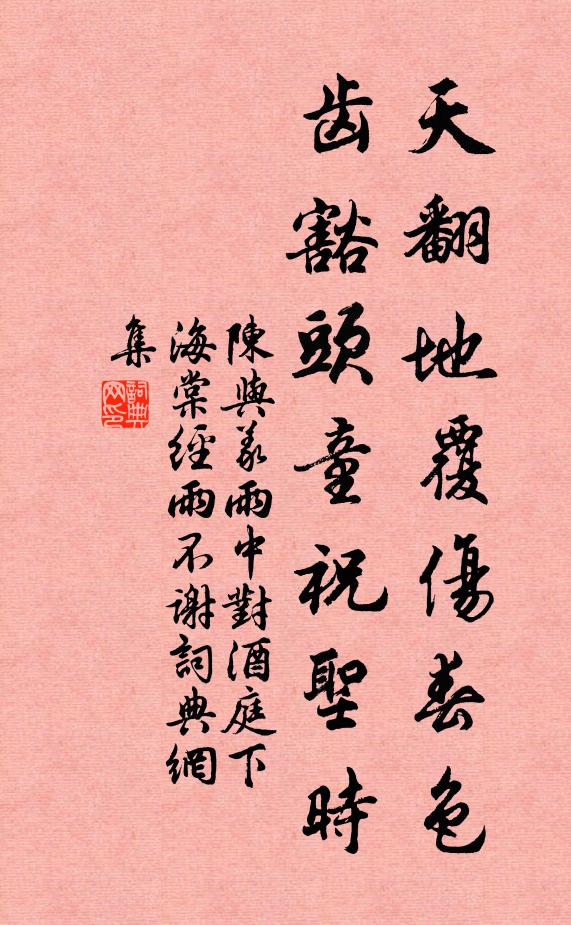 天翻地覆傷春色
齿豁頭童祝聖時
陳與義雨中對酒庭下
海棠經雨不謝詞典網
集
詞典
网印